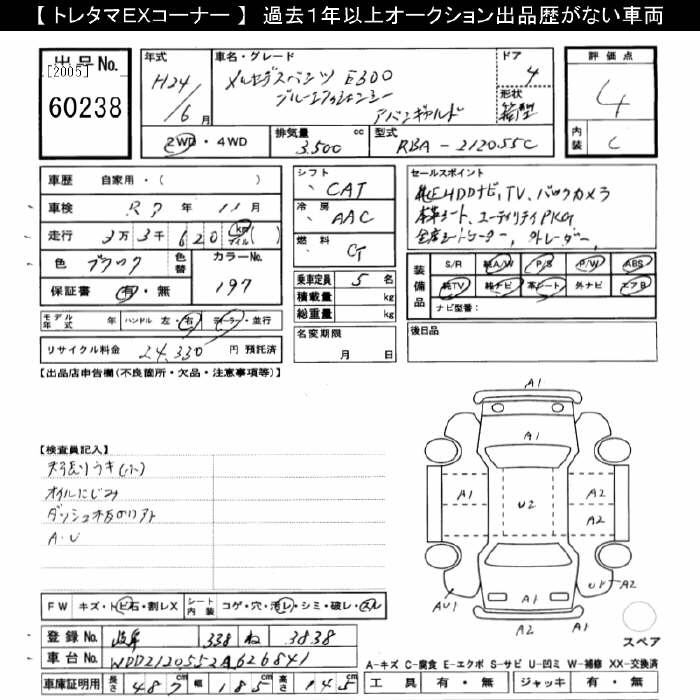 【 トレタマEXコーナー 】 過去1年以上オークション出品歴がない車両
出品No.
[2005]
60238
年式
H24/6月
車名・グレード
メルセデスベンツ E300
ブルーエフィシェンシー
アバンギャルド
ドア
4
形状
箱型
評価点
4
内装
C
2WD・4WD
排気量 cc
3.500
型式
RBA-212055C
車歴 自家用・( )
車検 R7年 11月
走行 3万 3千 620 km マイル ( )
色 ブラック 色替
カラーNo.
197
保証書 有・無
モデル年式 年 ハンドル 左・右 ディーラー・並行
リサイクル料金 24,330 円 預託済
シフト
CAT
冷房
AAC
燃料
乗車定員 5 名
積載量 kg
総重量 kg
名変期限
月 日
セールスポイント
純正HDDナビ, TV、バックカメラ
本革シート、ユーティリティPKG
全席シートヒーター, 外レーダー,
装備品
S/R 純A/W P/S P/W ABS
純TV 純ナビ 本シート 外ナビ エアB
ナビ型番:
後日品
【出品店申告欄(不良箇所・欠品・注意事項等)】
【検査員記入】
天張りウキ(小)
オイルにじみ
ダッシュ木目のワレ
A・U
A1
A1
A1
U2
A2
A2
AU1
A1
A2
A1
スペア
FW キズ・トビ石・割レX
シート内装 コゲ・穴・汚レ・シミ・破レ・スレ
登録No. 岐阜 338 ね 3838
車台No. WDD2120552A626841
車庫証明用 長さ 487cm 幅 185cm 高さ 145cm
A-キズ C-腐食 E-エクボ S-サビ U-凹ミ W-補修 XX-交換済
工具 有・無 ジャッキ 有・無